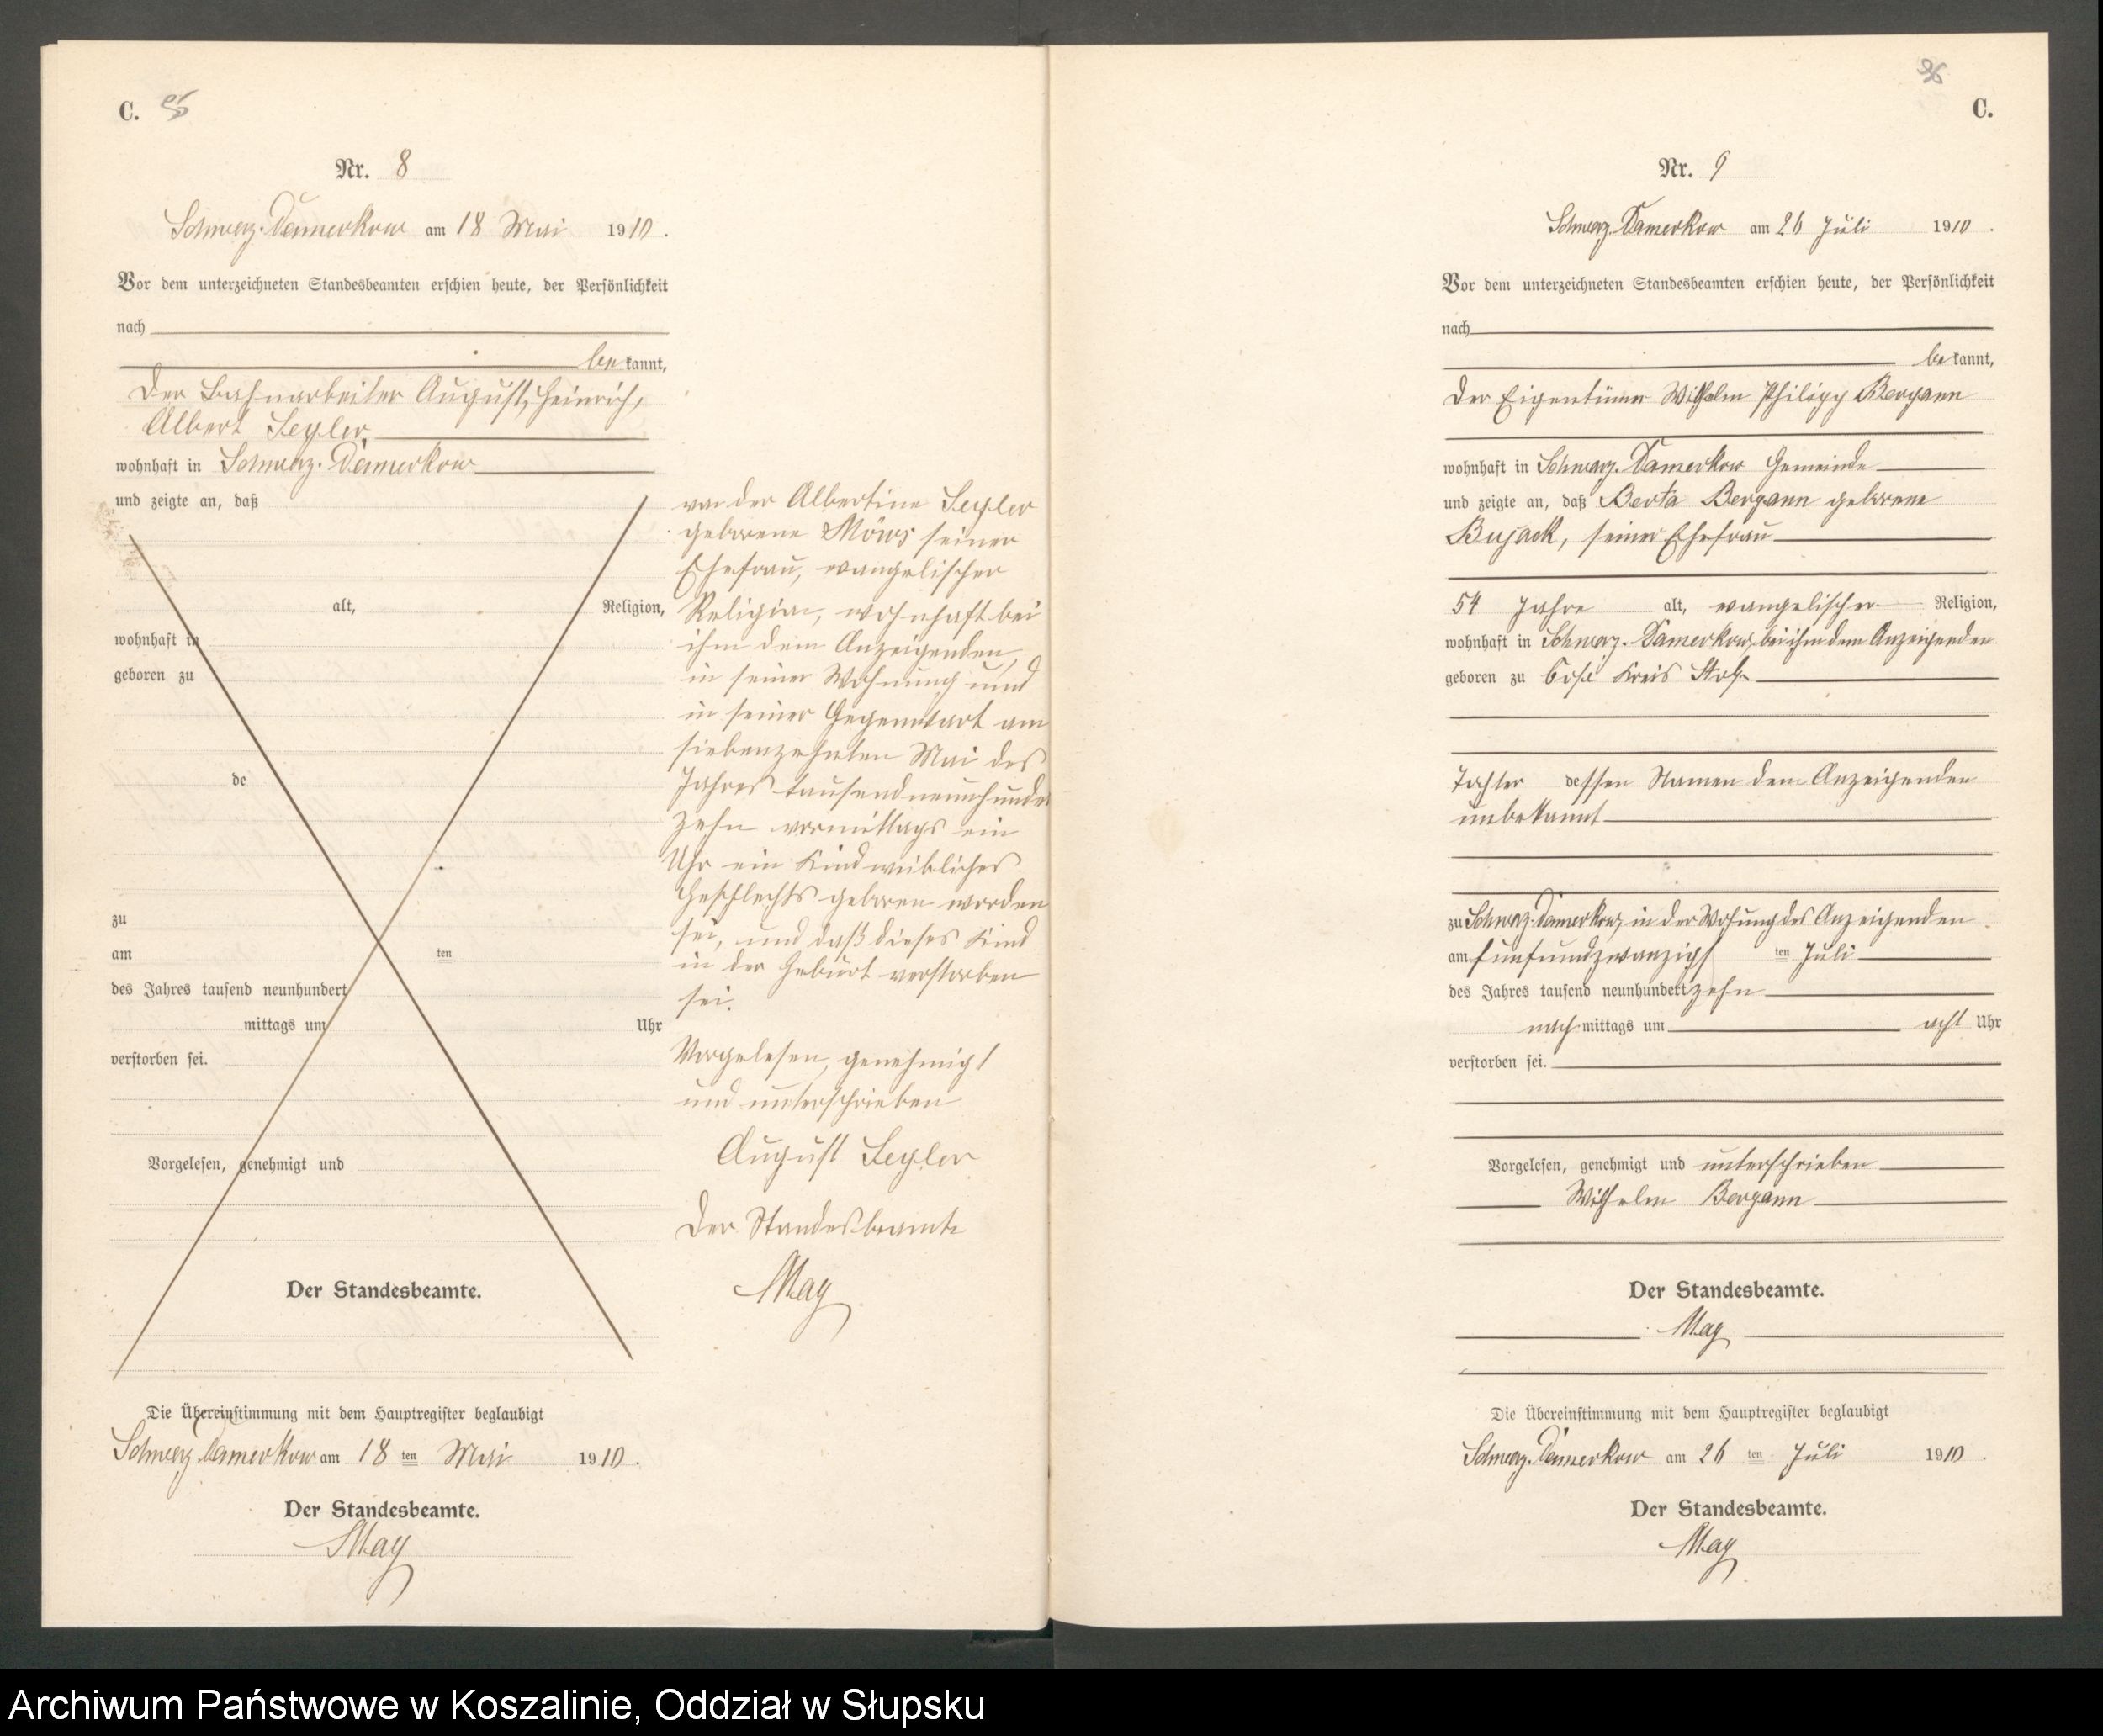 C.
Nr. 8
Schwarz-Damerkow am 18 Mai 1910.
Vor dem unterzeichneten Standesbeamten erschien heute, der Persönlichkeit
nach
bekannt,
Der Bahnarbeiter August, Heinrich,
Albert Seyler
wohnhaft in Schwarz-Damerkow
und zeigte an, daß
alt, Religion,
wohnhaft in
geboren zu
de
zu
am ten
des Jahres tausend neunhundert
mittags um Uhr
verstorben sei.
Vorgelesen, genehmigt und
Der Standesbeamte.
von der Albertine Seyler
geborene Möws seiner
Ehefrau, evangelischer
Religion, wohnhaft bei
ihm dem Anzeigenden,
in seiner Wohnung und
in seiner Gegenwart am
siebenzehnten Mai des
Jahres tausendneunhundert
zehn vormittags ein
Uhr ein Kind weibliches
Geschlechts geboren worden
sei, und daß dieses Kind
in der Geburt verstorben
sei.
Vorgelesen, genehmigt
und unterschrieben
August Seyler
Der Standesbeamte
May
Die Übereinstimmung mit dem Hauptregister beglaubigt
Schwarz-Damerkow am 18ten Mai 1910.
Der Standesbeamte.
May
96
C.
Nr. 9
Schwarz-Damerkow am 26 Juli 1910.
Vor dem unterzeichneten Standesbeamten erschien heute, der Persönlichkeit
nach
bekannt,
Der Eigentümer Wilhelm Philipp Bergann
wohnhaft in Schwarz-Damerkow Gemeinde
und zeigte an, daß Berta Bergann geborene
Bujack, seiner Ehefrau
54 Jahre alt, evangelischer Religion,
wohnhaft in Schwarz-Damerkow, bei ihm dem Anzeigenden
geboren zu Kreis Stolp
Tochter dessen Namen dem Anzeigenden
unbekannt
zu Schwarz-Damerkow, in der Wohung des Anzeigenden
am fünfundzwanzigsten Juli
des Jahres tausend neunhundert zehn
nachmittags um acht Uhr
verstorben sei.
Vorgelesen, genehmigt und unterschrieben
Wilhelm Bergann
Der Standesbeamte.
May
Die Übereinstimmung mit dem Hauptregister beglaubigt
Schwarz-Damerkow am 26ten Juli 1910.
Der Standesbeamte.
May
Archiwum Państwowe w Koszalinie, Oddział w Słupsku